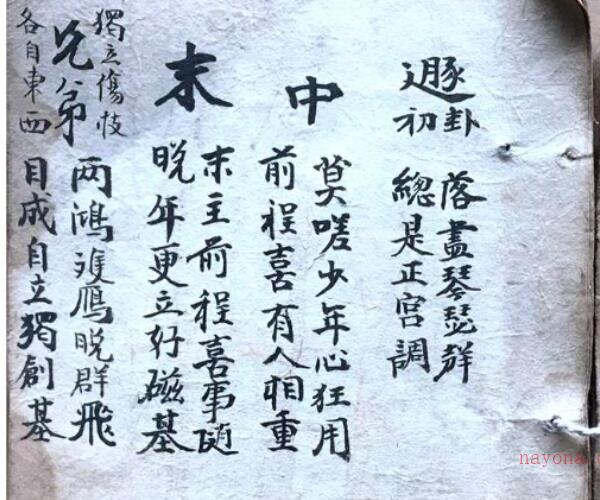 遯卦
初
落盡琴瑟群
總是正宮調
中
莫嗟少年心狂用
前程喜有人相重
末
末主前程喜事随
晚年更立好磁基
獨立傷枝
兄弟
各自東西
两鴻雙鴈晚群飛
目成自立獨創基
nayona